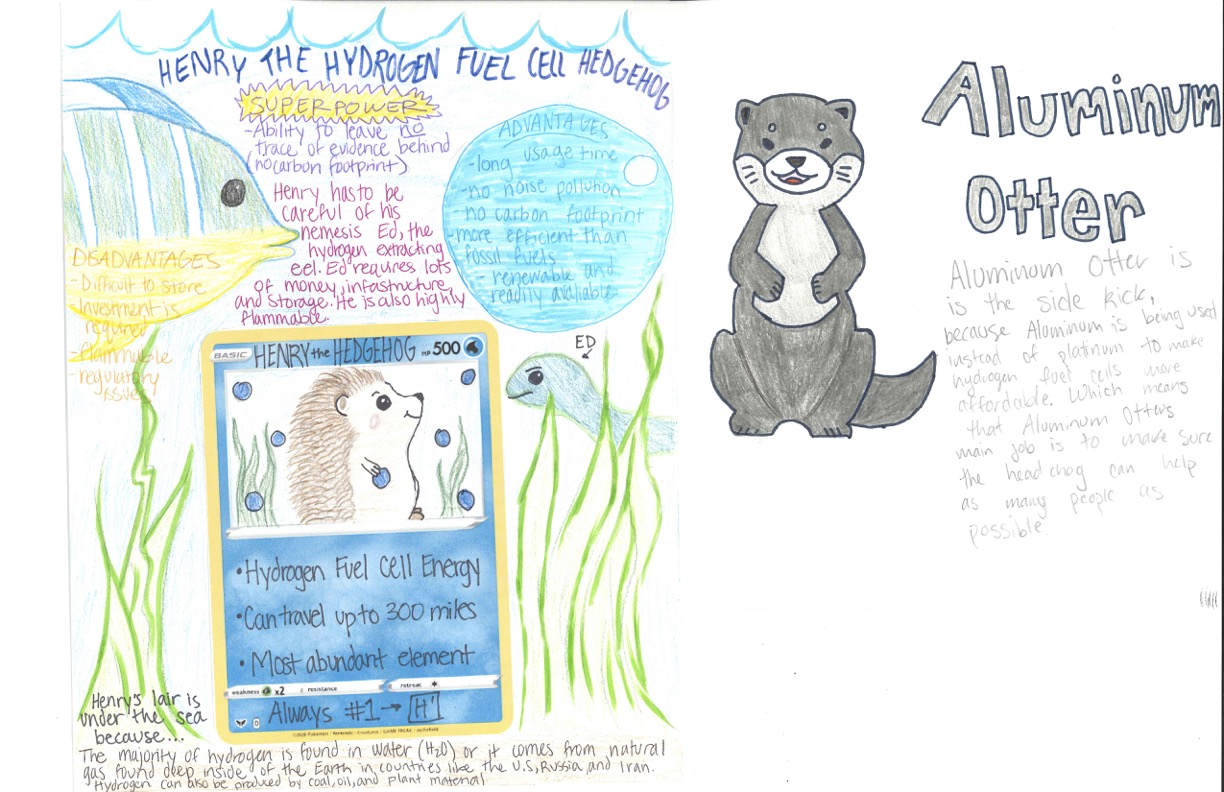 HENRY THE HYDROGEN FUEL CELL HEDGEHOG
SUPERPOWER
-Ability to leave no
trace of evidence behind
(no carbon footprint)
Henry has to be
careful of his
nemesis Ed, the
hydrogen extracting
eel. Ed requires lots
of money, infastructure,
and storage. He is also highly
flammable.
ADVANTAGES
-long usage time
-no noise pollution
-no carbon footprint
-more efficient than
fossil fuels
-renewable and
readily avaliable
DISADVANTAGES
-Difficult to store
-Investment is
required
-flammable
-regulatory
issues
ED
BASIC HENRY the HEDGEHOG HP 500
•Hydrogen Fuel Cell Energy
•Can travel up to 300 miles
•Most abundant element
weakness x2 resistance retreat
Always #1→ H'
©2020 Pokémon / Nintendo / Creatures / GAME FREAK
Henry's lair is
under the sea
because...
The majority of hydrogen is found in water (H2O) or it comes from natural
gas found deep inside of the Earth in countries like the U.S, Russia, and Iran.
Hydrogen can also be produced by coal, oil, and plant material
Aluminum
Otter
Aluminum Otter is
is the side kick,
because Aluminum is being used
instead of platinum to make
hydrogen fuel cells more
affordable. Which means
that Aluminum Otters
main job is to make sure
the headchog can help
as many people as
possible.